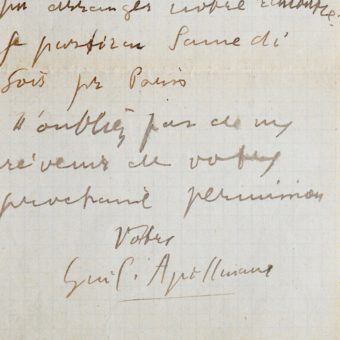 arranger notre rencontre.
Je partirai Samedi
Soir pr Paris
N'oubliez pas de me
prévenir de votre
prochaine permission
Votre
Guil. Apollinaire